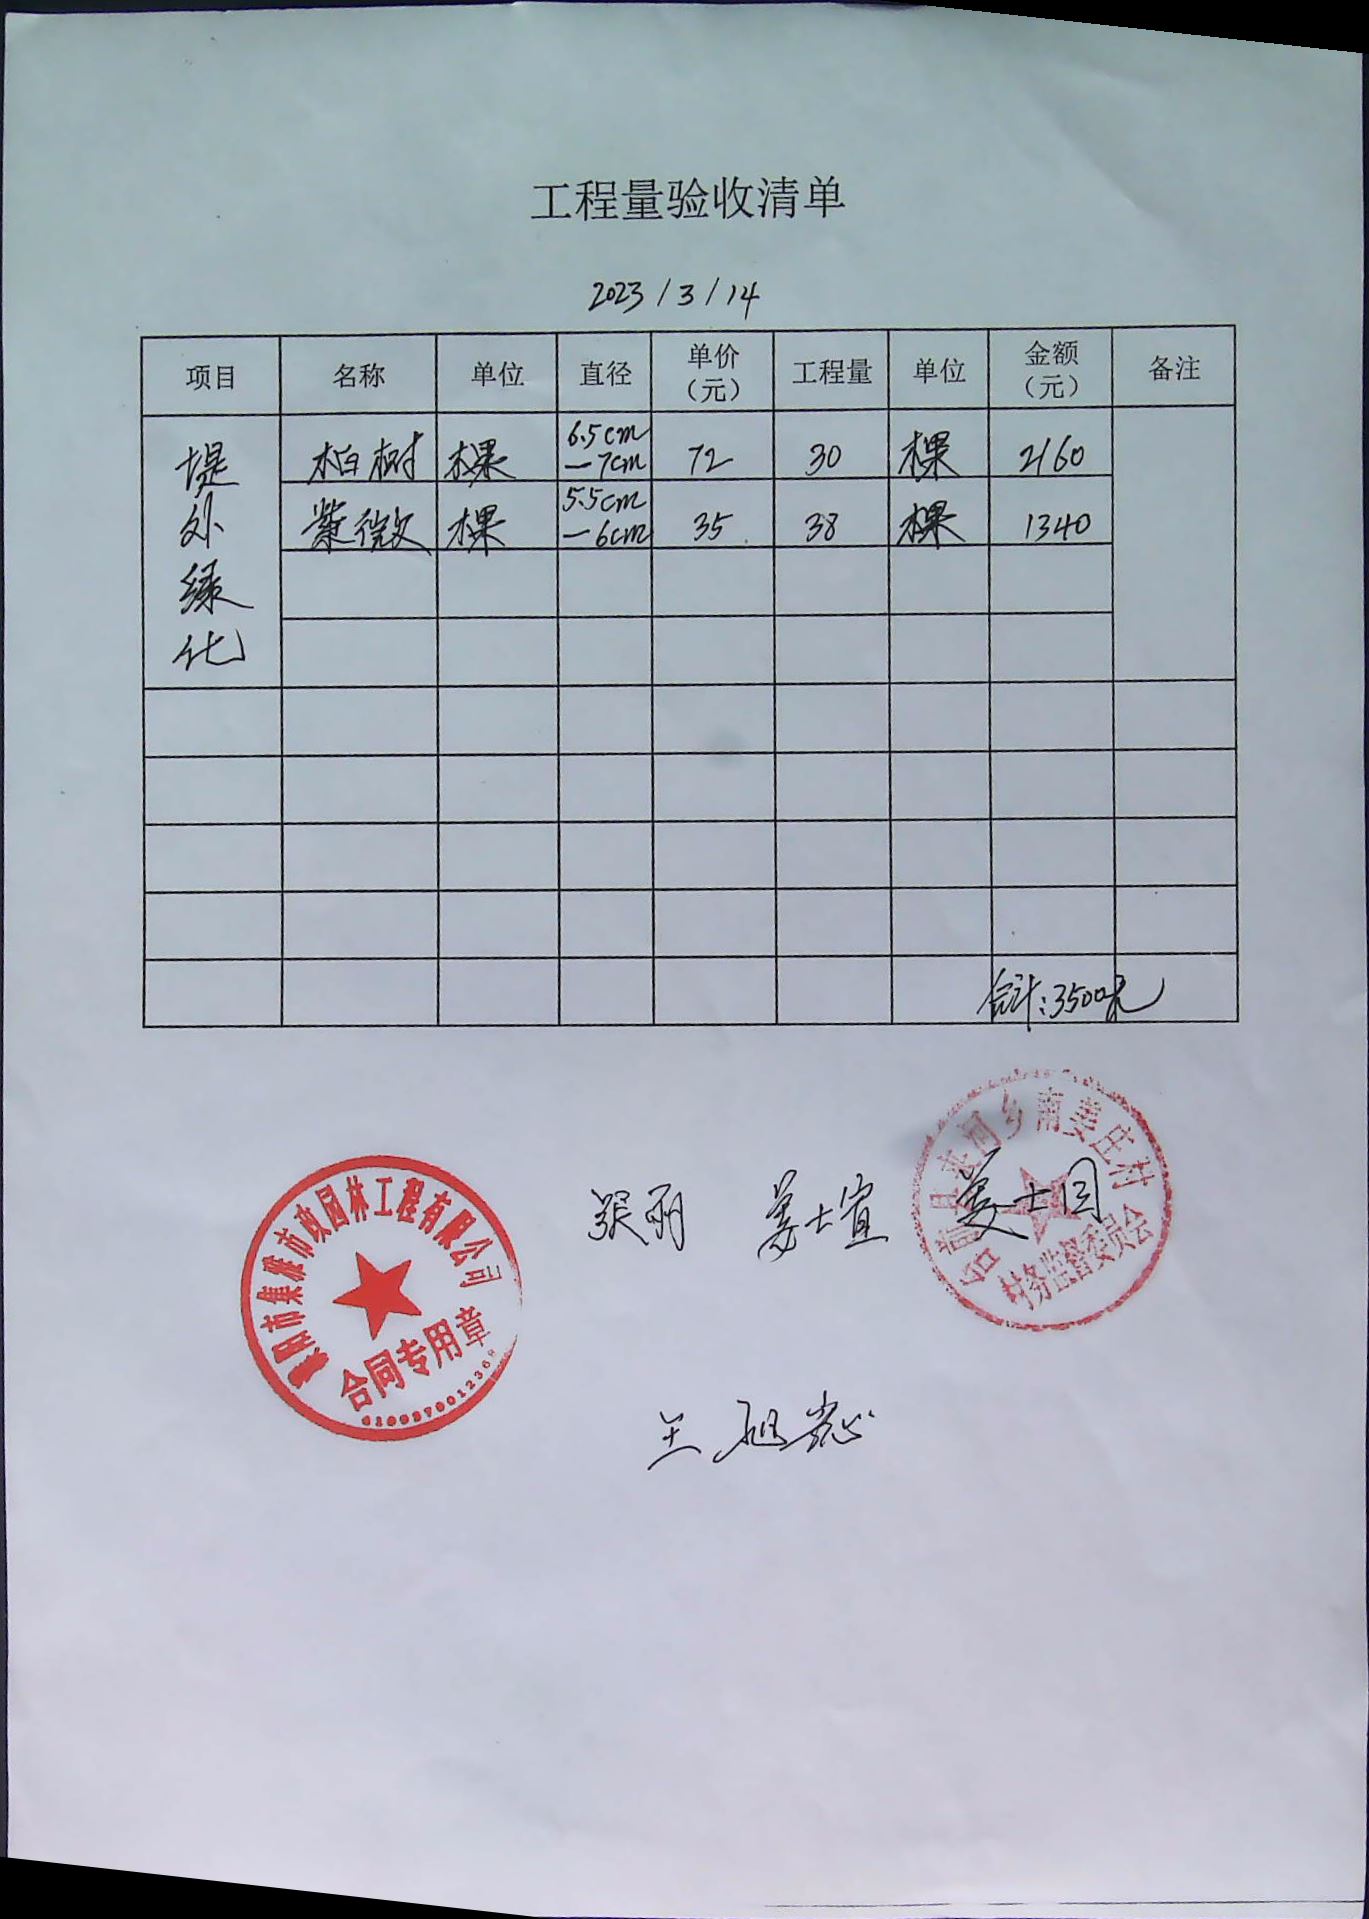 工程量验收清单
2023/3/14
项目 名称 单位 直径 单价（元） 工程量 单位 金额（元） 备注
堤外绿化 柏树 棵 6.5cm—7cm 72 30 棵 2160
紫微 棵 5.5cm—6cm 35 38 棵 1340
合计:3500元
市集雅市政园林工程有限公司
合同专用章
张丽 姜士宣 姜士国
乡南姜庄村
村务监督委员会
王旭